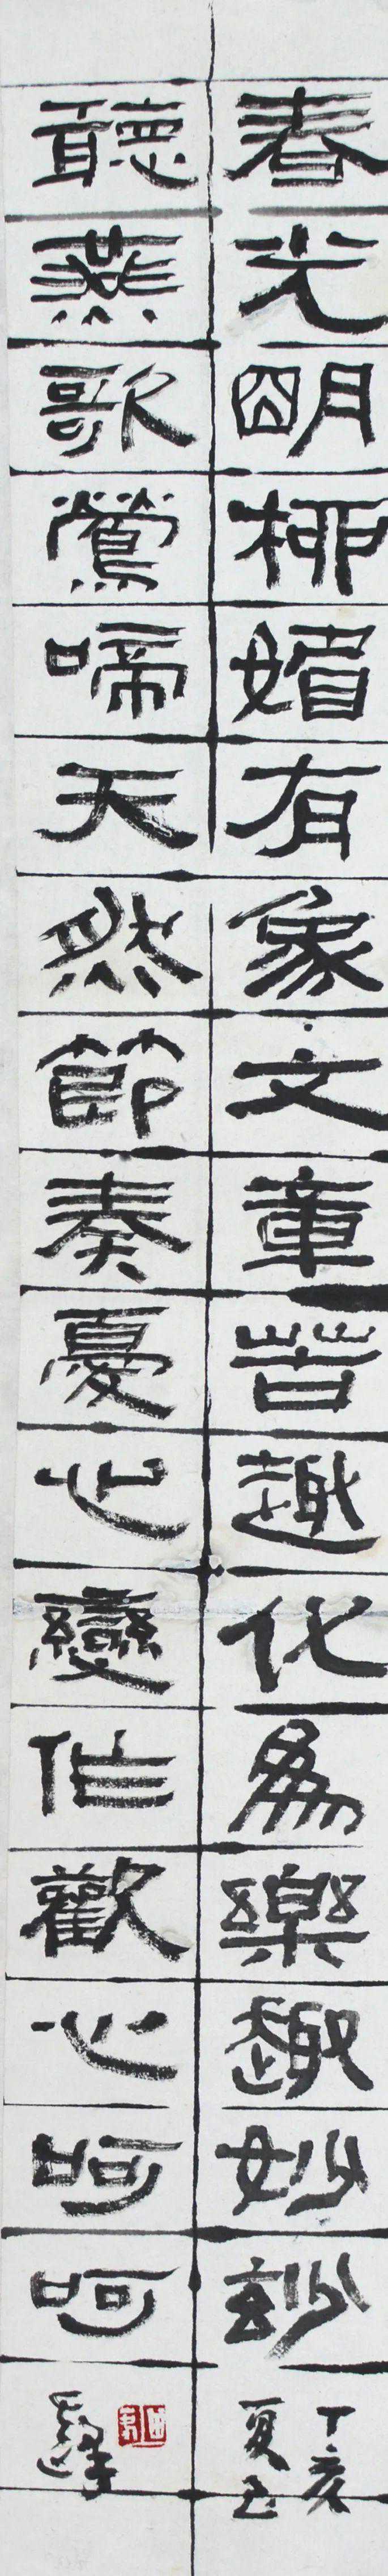 春光明柳媚有象文章苦趣化為樂趣妙玅
丁亥
夏
聽燕歌鶯啼天然節奏憂心變作歡心呵呵